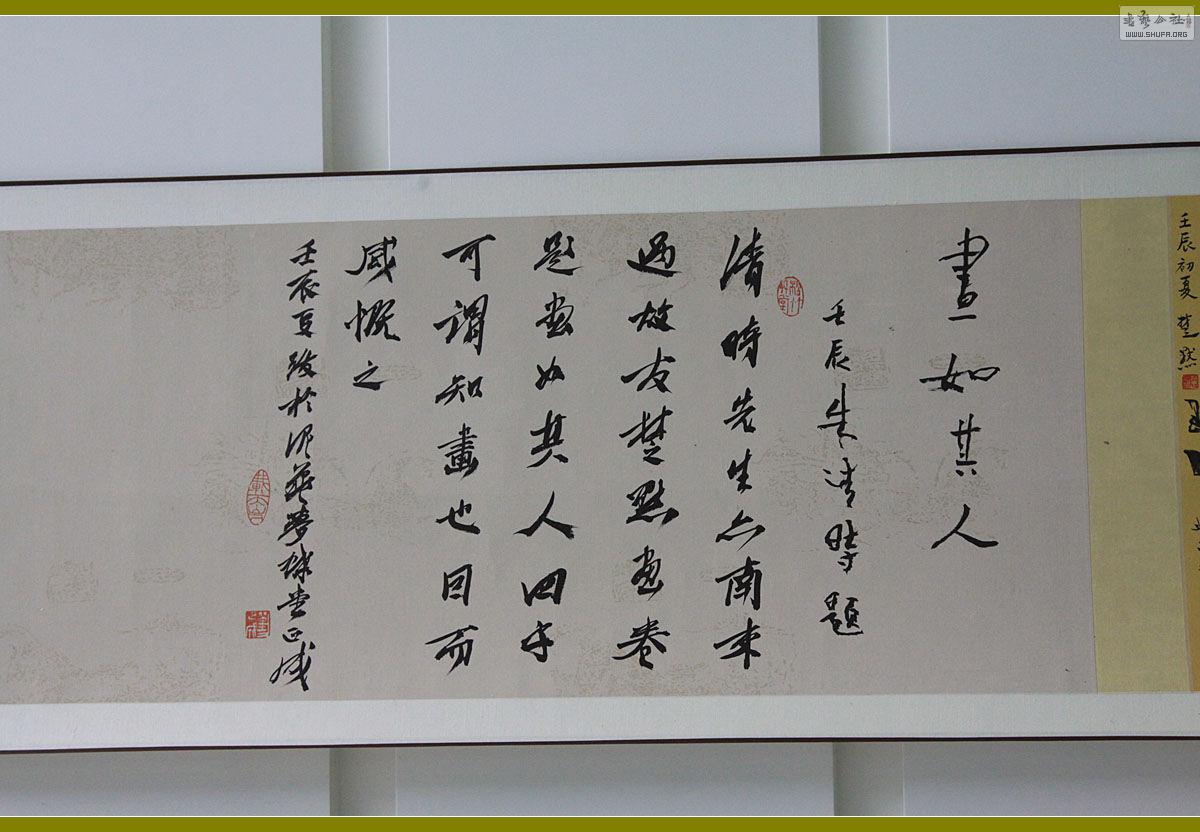 壬辰初夏 楚默
畫如其人
壬辰朱清時題
清時先生亦南来
過故友楚默画卷
題畫如其人四字
可謂知畫也因而
感慨之
壬辰夏跋於
書艺公社
WWW.SHUFA.ORG